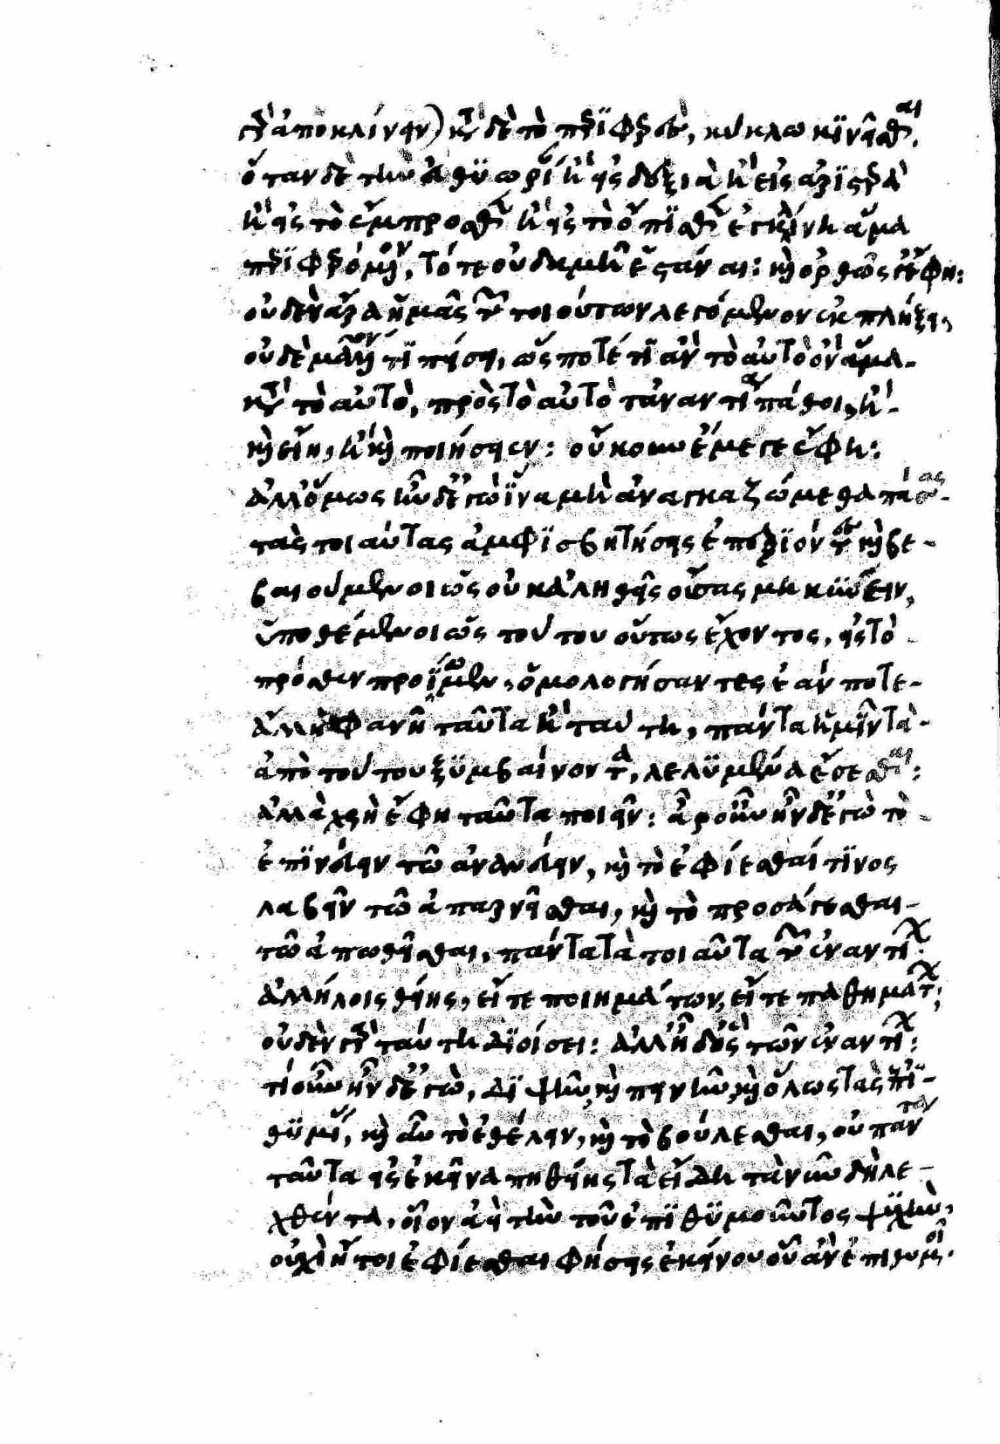 γὰρ ἀποκλίνειν) κατὰ δὲ τὸ περιφερὲς, κύκλω κινεῖσθαι.
ὅταν δὲ τὴν εὐθυωρίαν ἢ εἰς δεξιὰ ἢ εἰς ἀριστερὰ
ἢ εἰς τὸ ἔμπροσθεν ἢ εἰς τὸ ὄπισθεν ἐγκλίνη ἅμα
περιφερόμενον, τότε οὐδαμῆ ἑστάναι: καὶ ὀρθῶς ἔφη:
οὐδὲν ἄρα ἡμᾶς τῶν τοιούτων λεγόμενον ἐκπλήξει,
οὐδὲ μᾶλλόν τι πείσει, ὥς ποτέ τι ἂν τὸ αὐτὸ ὂν ἅμα
κατὰ τὸ αὐτὸ, πρὸς τὸ αὐτὸ τἀναντία πάθοι, ἢ
καὶ εἴη, ἢ καὶ ποιήσειεν: οὔκουν ἐμέ γε ἔφη:
ἀλλ' ὅμως ἦν δ' ἐγὼ ἵνα μὴ ἀναγκαζώμεθα πάσας
τὰς τοιαύτας ἀμφισβητήσεις ἐπεξιόντες καὶ βε-
βαιούμενοι ὡς οὐκ ἀληθεῖς οὔσας μηκύνειν,
ὑποθέμενοι ὡς τούτου οὕτως ἔχοντος, εἰς τὸ
πρόσθεν προΐωμεν, ὁμολογήσαντες ἐάν ποτε
ἄλλη φανῆ ταῦτα ἢ ταύτη, πάντα ἡμῖν τὰ
ἀπὸ τούτου ξυμβαίνοντα, λελυμένα ἔσεσθαι:
ἀλλὰ χρὴ ἔφη ταῦτα ποιεῖν: ἆρ' οὖν ἦν δ' ἐγὼ τὸ
ἐπινεύειν τῶ ἀνανεύειν, καὶ τὸ ἐφίεσθαί τινος
λαβεῖν τῶ ἀπαρνεῖσθαι, καὶ τὸ προσάγεσθαι
τῶ ἀπωθεῖσθαι, πάντα τὰ τοιαῦτα τῶν ἐναντίων
ἀλλήλοις θείης, εἴτε ποιημάτων, εἴτε παθημάτων;
οὐδὲν γὰρ ταύτη διοίσει: ἀλλ' ἦ δ' ὃς τῶν ἐναντίων:
τί οὖν ἦν δ' ἐγὼ, διψῆν καὶ πεινῆν καὶ ὅλως τὰς ἐπι-
θυμίας, καὶ αὖ τὸ ἐθέλειν, καὶ τὸ βούλεσθαι, οὐ πάντα
ταῦτα εἰς ἐκεῖνα πη θείης τὰ εἴδη τὰ νῦν δὴ λε-
χθέντα, οἷον ἀεὶ τὴν τοῦ ἐπιθυμοῦντος ψυχὴν,
οὐχὶ ἤτοι ἐφίεσθαι φήσεις ἐκείνου οὗ ἂν ἐπιθυμοῖ.